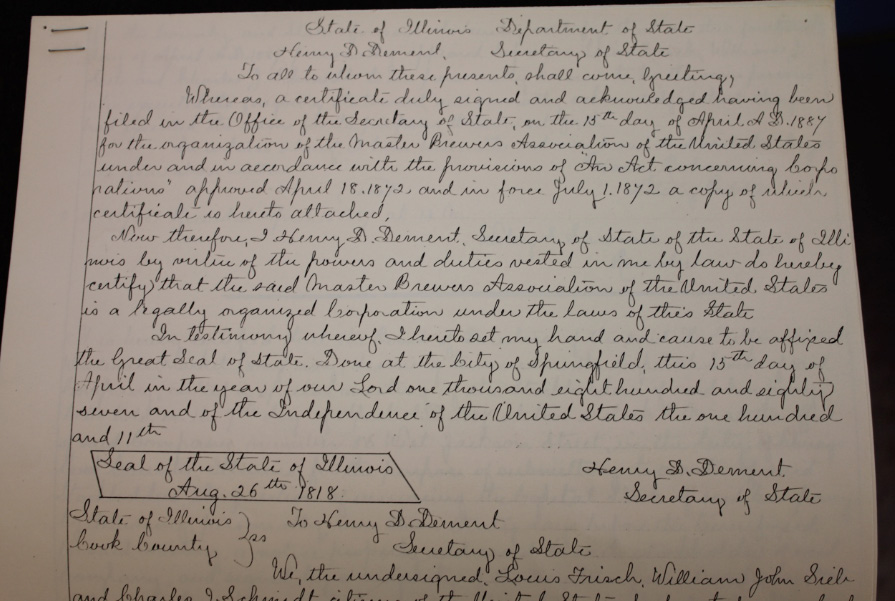 State of Illinois Department of State
Henry D Dement, Secretary of State
To all to whom these presents, shall come, Greeting,
Whereas, a certificate duly signed and acknowledged having been
filed in the Office of the Secretary of State, on the 15th day of April A.D. 1887
for the organization of the Master Brewers Association of the United States
under and in accordance with the provisions of "An Act concerning Corpo
rations" approved April 18.1872, and in force July 1.1872 a copy of which
certificate is hereto attached,
Now therefore, I Henry D. Dement, Secretary of State of the State of Illi
nois by virtue of the powers and duties vested in me by law do hereby
certify that the said Master Brewers Association of the United States
is a legally organized Corporation under the laws of this State
In testimony whereof, I hereto set my hand and cause to be affixed
the Great Seal of State. Done at the City of Springfield, this 15th day of
April in the year of our Lord one thousand eight hundred and eighty
seven and of the Independence of the United States the one hundred
and 11th
Seal of the State of Illinois
Aug. 26th 1818.
Henry D. Dement
Secretary of State
State of Illinois } ss To Henry D Dement
Cook County Secretary of State
We, the undersigned, Louis Frisch, William John Sieb
and Charles J. Schmidt citizens of the United States